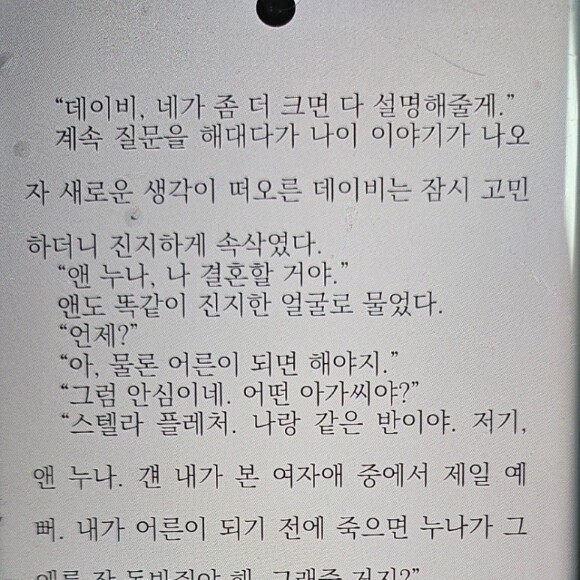 “데이비, 네가 좀 더 크면 다 설명해줄게.”
계속 질문을 해대다가 나이 이야기가 나오
자 새로운 생각이 떠오른 데이비는 잠시 고민
하더니 진지하게 속삭였다.
“앤 누나, 나 결혼할 거야.”
앤도 똑같이 진지한 얼굴로 물었다.
“언제?”
“아, 물론 어른이 되면 해야지.”
“그럼 안심이네. 어떤 아가씨야?”
“스텔라 플레처. 나랑 같은 반이야. 저기,
앤 누나. 걘 내가 본 여자애 중에서 제일 예
뻐. 내가 어른이 되기 전에 죽으면 누나가 그